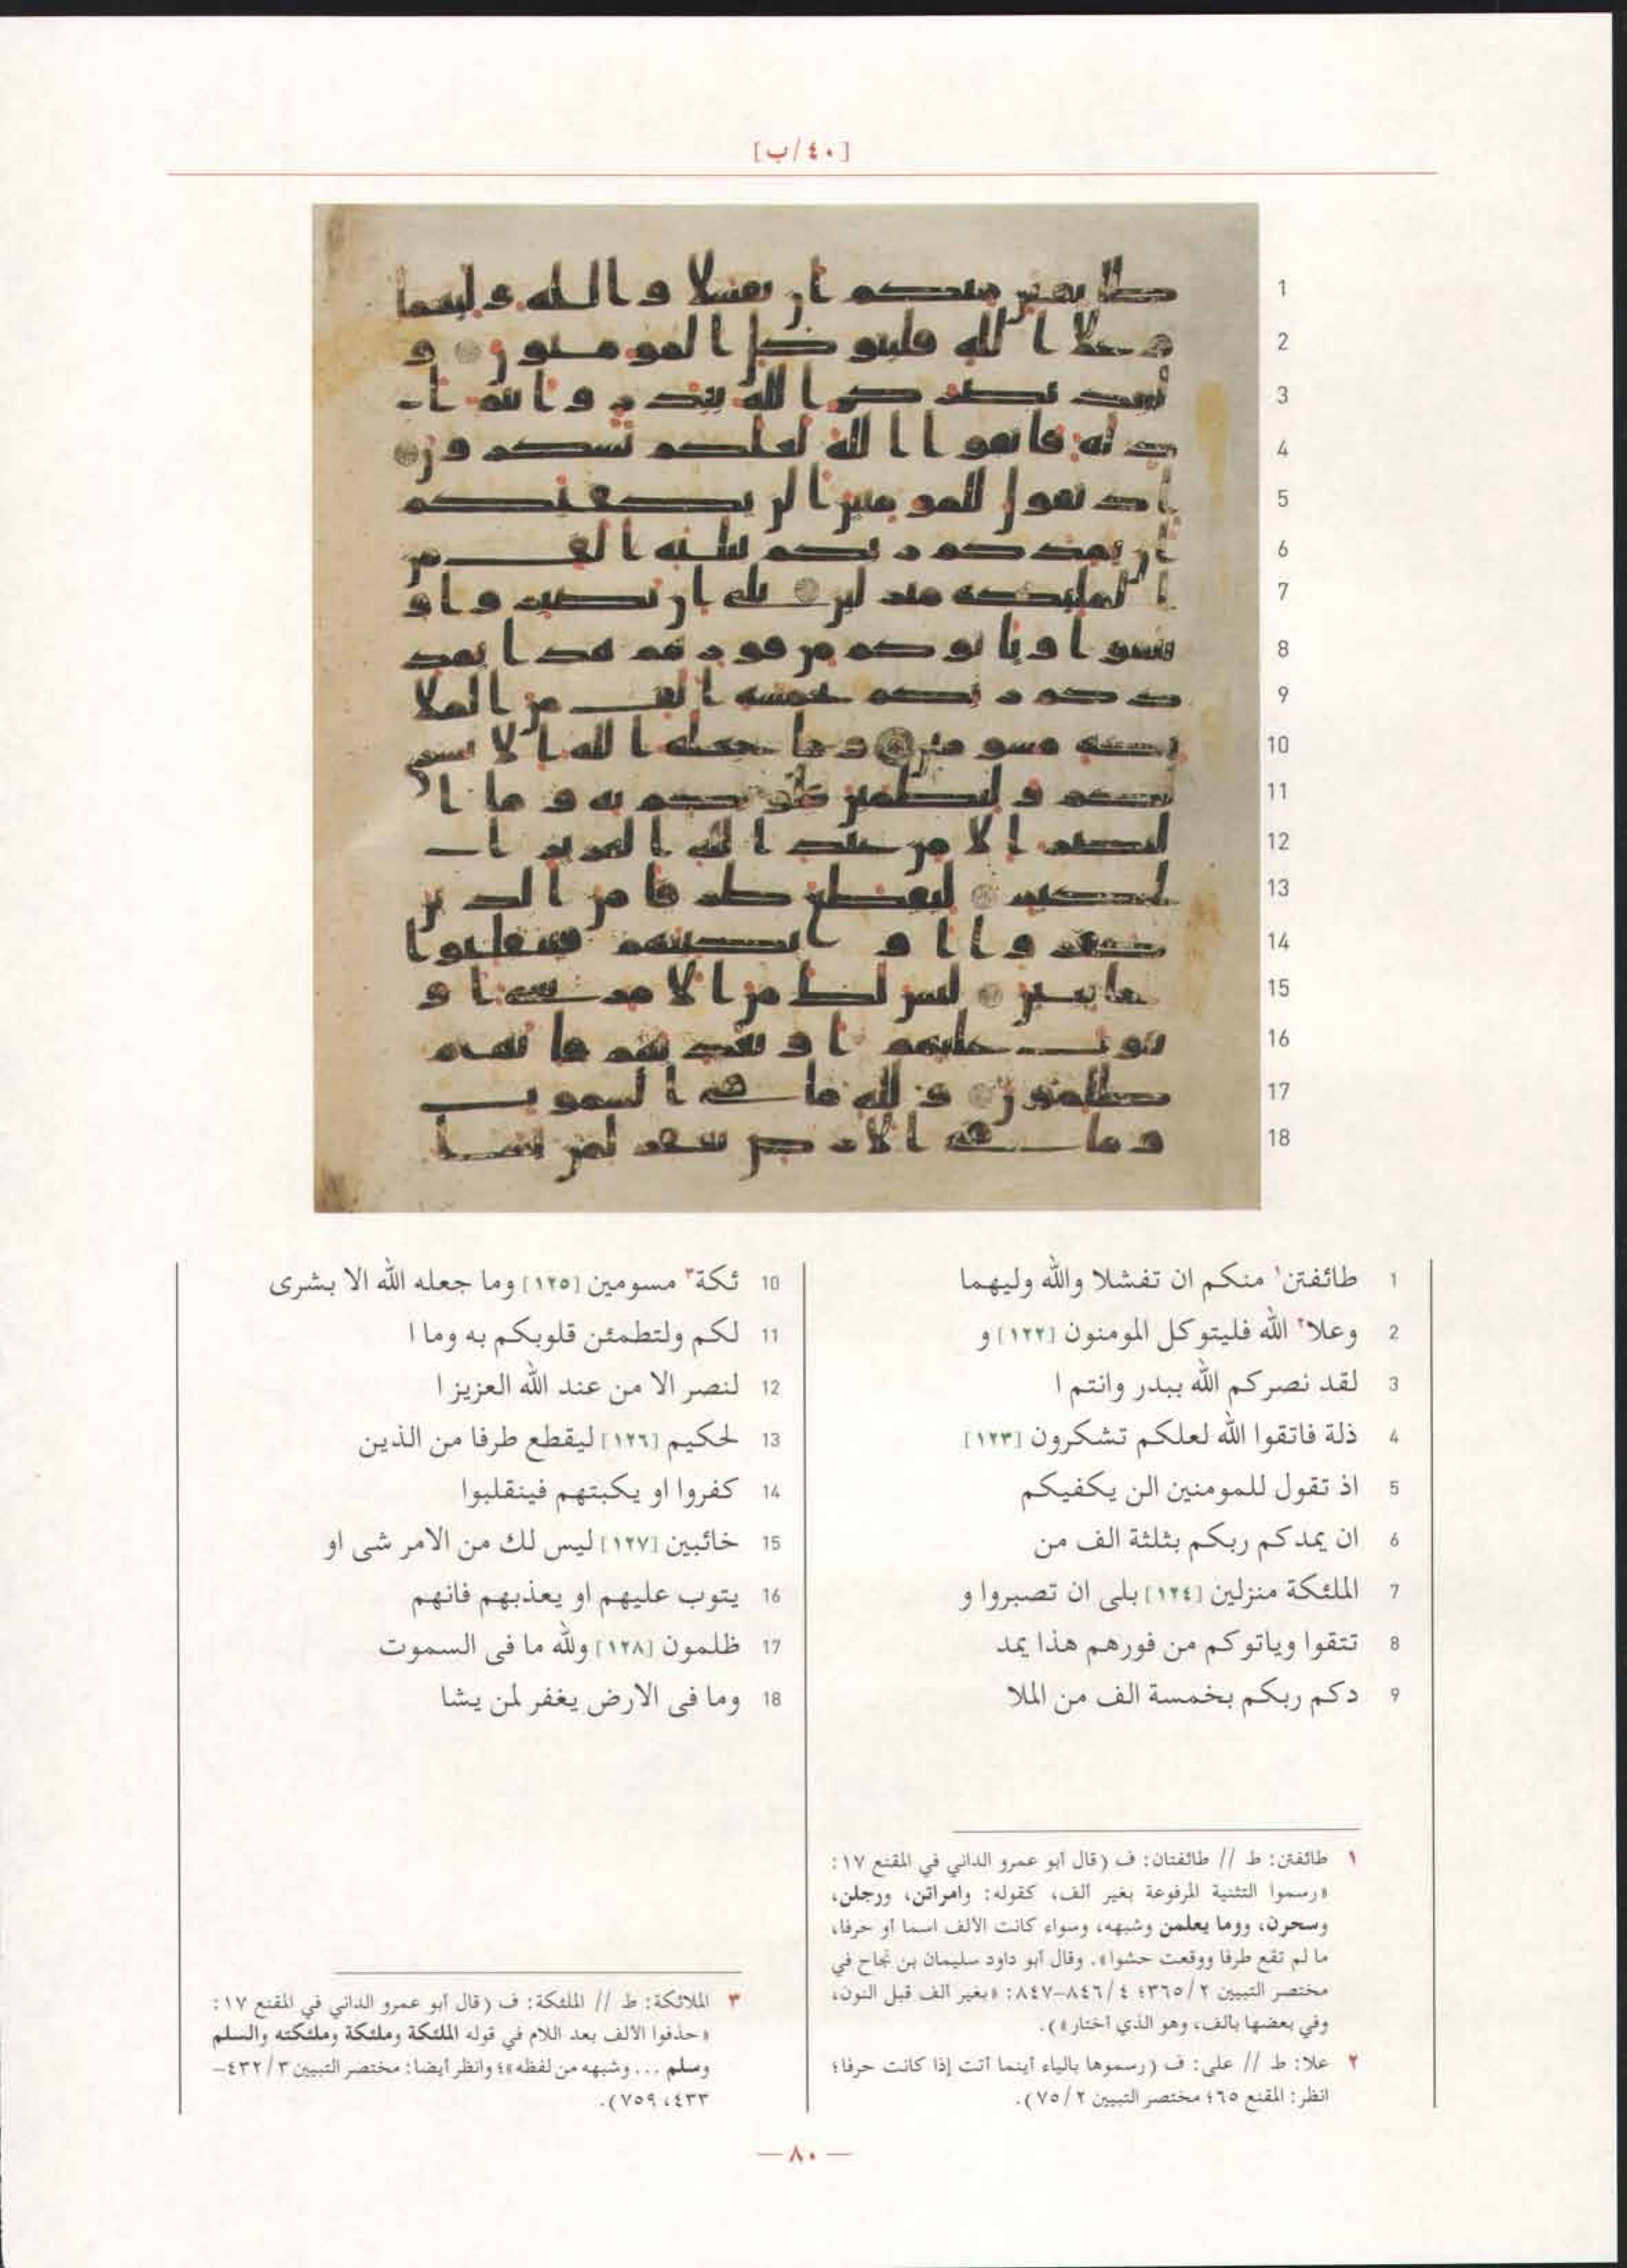 [٤٠/ب]
1 طائفتن١ منكم ان تفشلا والله وليهما
2 وعلا٢ الله فليتوكل المومنون [١٢٢] و
3 لقد نصركم الله ببدر وانتم ا
4 ذلة فاتقوا الله لعلكم تشكرون [١٢٣]
5 اذ تقول للمومنين الن يكفيكم
6 ان يمدكم ربكم بثلثة الف من
7 الملئكة منزلين [١٢٤] بلى ان تصبروا و
8 تتقوا وياتوكم من فورهم هذا يمد
9 دكم ربكم بخمسة الف من الملا
10 ئكة٣ مسومين [١٢٥] وما جعله الله الا بشرى
11 لكم ولتطمئن قلوبكم به وما ا
12 لنصر الا من عند الله العزيز ا
13 لحكيم [١٢٦] ليقطع طرفا من الذين
14 كفروا او يكبتهم فينقلبوا
15 خائبين [١٢٧] ليس لك من الامر شى او
16 يتوب عليهم او يعذبهم فانهم
17 ظلمون [١٢٨] ولله ما فى السموت
18 وما فى الارض يغفر لمن يشا
١ طائفتن: ط // طائفتان: ف (قال أبو عمرو الداني في المقنع ١٧:
«رسموا التثنية المرفوعة بغير ألف، كقوله: وامراتن، ورجلن،
وسحرن، ووما يعلمن وشبهه، وسواء كانت الألف اسما أو حرفا،
ما لم تقع طرفا ووقعت حشوا». وقال أبو داود سليمان بن نجاح في
مختصر التبيين ٢/٣٦٥؛ ٤/٨٤٦–٨٤٧: «بغير ألف قبل النون،
وفي بعضها بألف، وهو الذي أختار»).
٢ علا: ط // على: ف (رسموها بالياء أينما أتت إذا كانت حرفا؛
انظر: المقنع ٦٥؛ مختصر التبيين ٢/٧٥).
٣ الملائكة: ط // الملئكة: ف (قال أبو عمرو الداني في المقنع ١٧:
«حذفوا الألف بعد اللام في قوله الملئكة وملئكة وملئكته والسلم
وسلم ... وشبهه من لفظه»؛ وانظر أيضا: مختصر التبيين ٣/٤٣٢–
٤٣٣، ٧٥٩).
— ٨٠ —